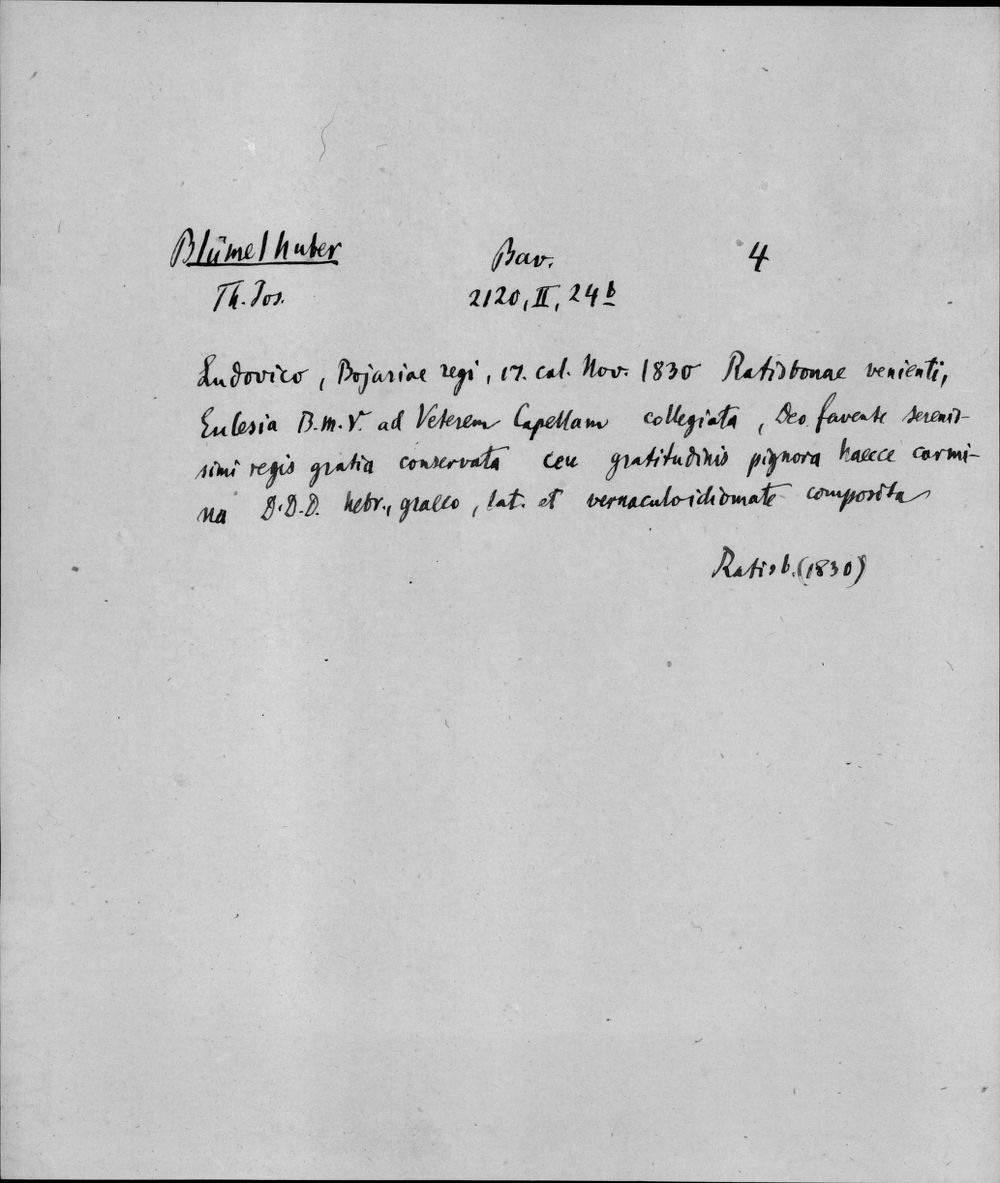 Blümelhuber Bav. 4
Th. Jos. 2120, II, 24b
Ludovico, Bojariae regi, 17. cal. Nov. 1830 Ratisbonae venienti,
Eclesia B.M.V. ad Veterem Capellam collegiata, Deo favente serenis-
simi regis gratia conservata ceu gratitudinis pignora haecce carmi-
na D.D.D. hebr., graeco, lat. et vernaculo idiomate composita
Ratisb. (1830)